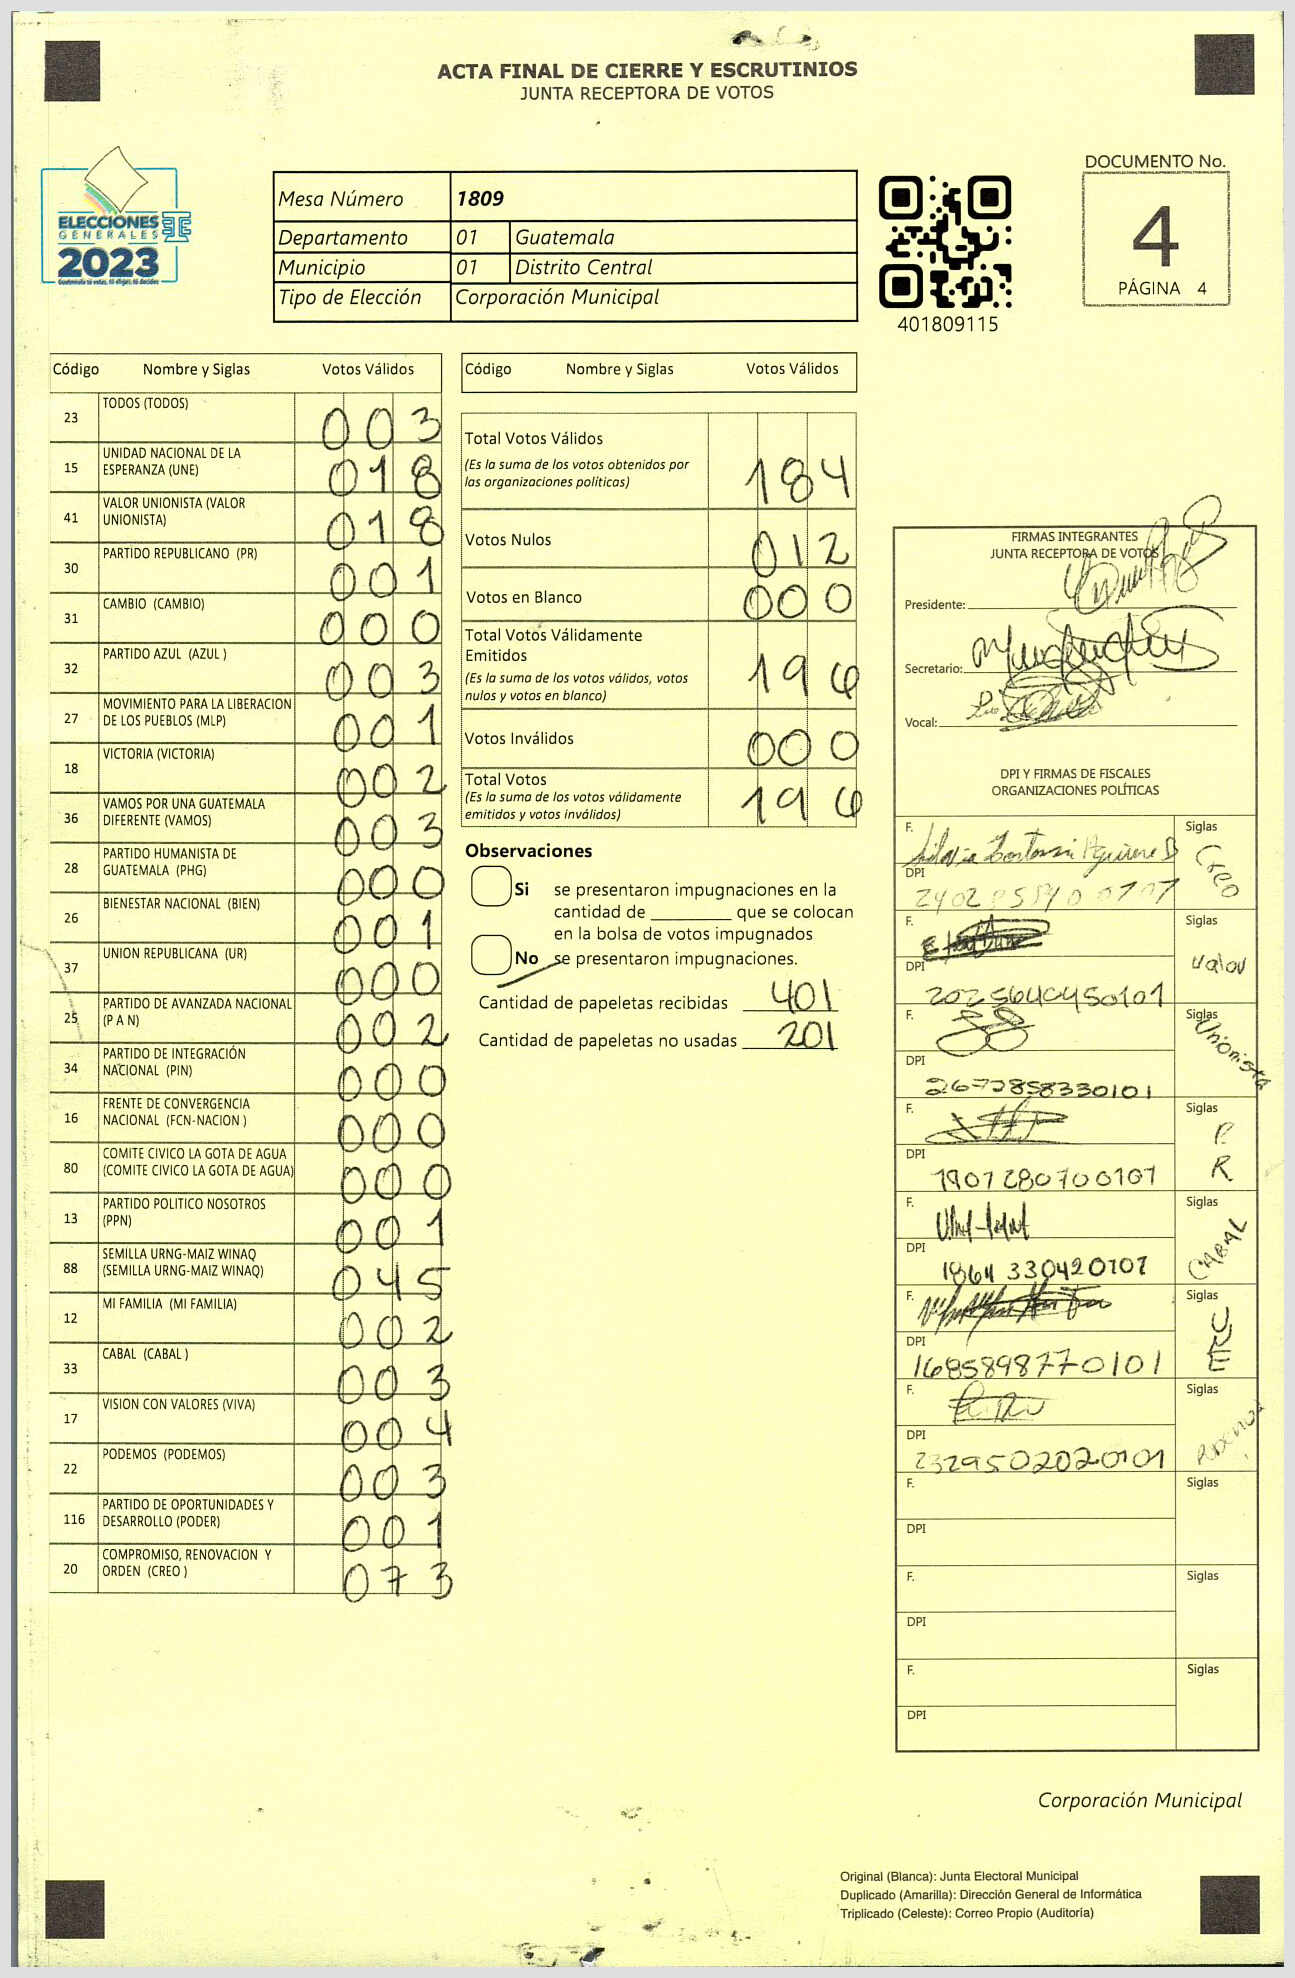 ACTA FINAL DE CIERRE Y ESCRUTINIOS
JUNTA RECEPTORA DE VOTOS
ELECCIONES
GENERALES
2023
Mesa Número 1809
Departamento 01 Guatemala
Municipio 01 Distrito Central
Tipo de Elección Corporación Municipal
401809115
DOCUMENTO No.
4
PÁGINA 4
Código Nombre y Siglas Votos Válidos
23 TODOS (TODOS) 003
15 UNIDAD NACIONAL DE LA
ESPERANZA (UNE) 018
41 VALOR UNIONISTA (VALOR
UNIONISTA) 018
30 PARTIDO REPUBLICANO (PR) 001
31 CAMBIO (CAMBIO) 000
32 PARTIDO AZUL (AZUL ) 003
27 MOVIMIENTO PARA LA LIBERACION
DE LOS PUEBLOS (MLP) 001
18 VICTORIA (VICTORIA) 002
36 VAMOS POR UNA GUATEMALA
DIFERENTE (VAMOS) 003
28 PARTIDO HUMANISTA DE
GUATEMALA (PHG) 000
26 BIENESTAR NACIONAL (BIEN) 001
37 UNION REPUBLICANA (UR) 000
25 PARTIDO DE AVANZADA NACIONAL
(P A N) 002
34 PARTIDO DE INTEGRACIÓN
NACIONAL (PIN) 000
16 FRENTE DE CONVERGENCIA
NACIONAL (FCN-NACION ) 000
80 COMITE CIVICO LA GOTA DE AGUA
(COMITE CIVICO LA GOTA DE AGUA) 000
13 PARTIDO POLITICO NOSOTROS
(PPN) 001
88 SEMILLA URNG-MAIZ WINAQ
(SEMILLA URNG-MAIZ WINAQ) 045
12 MI FAMILIA (MI FAMILIA) 002
33 CABAL (CABAL ) 003
17 VISION CON VALORES (VIVA) 004
22 PODEMOS (PODEMOS) 003
116 PARTIDO DE OPORTUNIDADES Y
DESARROLLO (PODER) 001
20 COMPROMISO, RENOVACION Y
ORDEN (CREO ) 073
Código Nombre y Siglas Votos Válidos
Total Votos Válidos
(Es la suma de los votos obtenidos por
las organizaciones políticas) 184
Votos Nulos 012
Votos en Blanco 000
Total Votos Válidamente
Emitidos
(Es la suma de los votos válidos, votos
nulos y votos en blanco) 196
Votos Inválidos 000
Total Votos
(Es la suma de los votos válidamente
emitidos y votos inválidos) 196
Observaciones
Si se presentaron impugnaciones en la
cantidad de ________ que se colocan
en la bolsa de votos impugnados
No se presentaron impugnaciones.
Cantidad de papeletas recibidas 401
Cantidad de papeletas no usadas 201
FIRMAS INTEGRANTES
JUNTA RECEPTORA DE VOTOS
Presidente:
Secretario:
Vocal:
DPI Y FIRMAS DE FISCALES
ORGANIZACIONES POLÍTICAS
F. Siglas
Creo
DPI
F. Siglas
Valor
DPI 2025640450101
F. Siglas
Unionista
DPI 2672858330101
F. Siglas
P R
DPI 1907280700101
F. Siglas
CABAL
DPI 1864 330420101
F. Siglas
DPI 1685898770101
F. Siglas
Podemos
DPI 2329502020101
F. Siglas
DPI
F. Siglas
DPI
F. Siglas
DPI
Corporación Municipal
Original (Blanca): Junta Electoral Municipal
Duplicado (Amarilla): Dirección General de Informática
Triplicado (Celeste): Correo Propio (Auditoría)